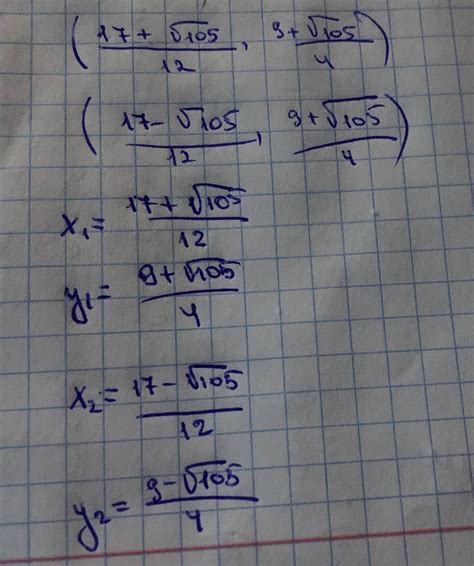 (17 + √105 / 12, 9 + √105 / 4)
(17 - √105 / 12, 9 + √105 / 4)
x₁ = 17 + √105 / 12
y₁ = 9 + √105 / 4
x₂ = 17 - √105 / 12
y₂ = 9 - √105 / 4